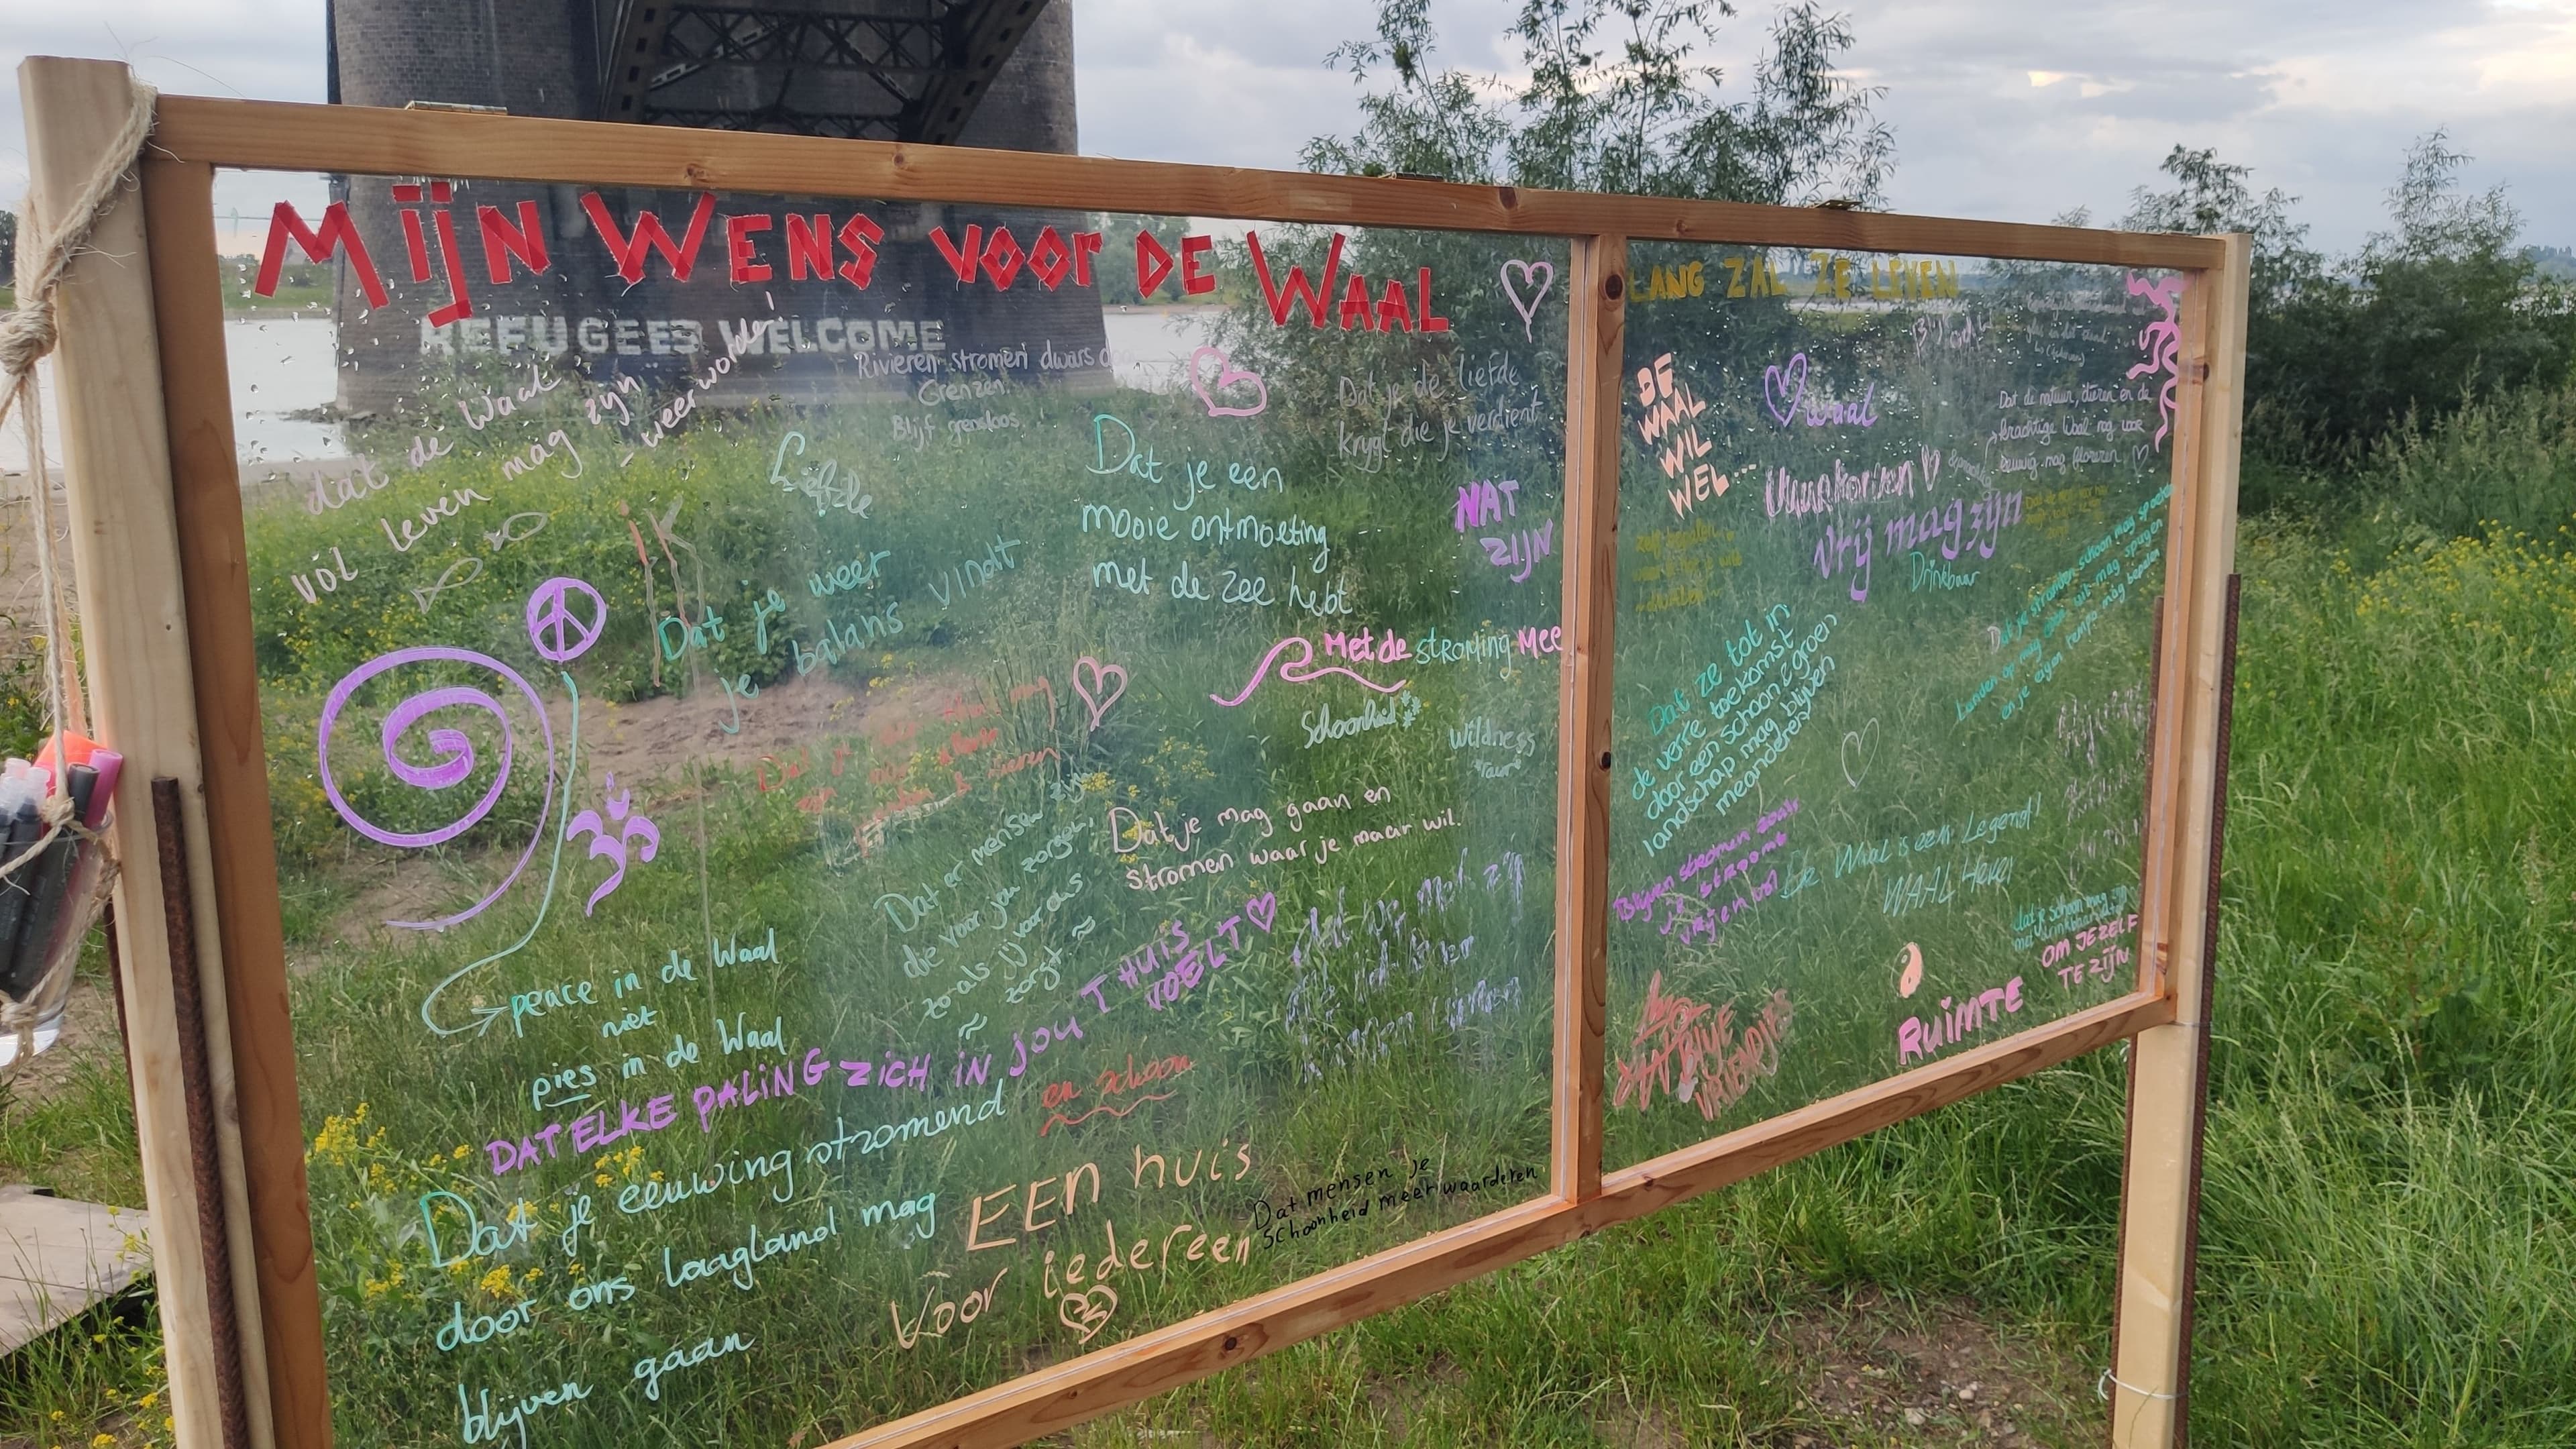 MijN WENS VOOR DE WAAL
REFUGEES WELCOME
dat de Waal
vol leven mag zijn
weer worden!
Rivieren stromen dwars
Grenzen.
Blijf grensloos
Liefde
Dat je de liefde
krijgt die je verdient
Dat je een
mooie ontmoeting
met de zee hebt
NAT
ZIJN
IK
Dat je weer
je balans vindt
Met de stroming Mee
Schoonheid
wildness
"rauw"
Dat je mag gaan en
stromen waar je maar wil.
Dat er mensen zijn
die voor jou zorgen,
zoals jij voor ons
zorgt.
peace in de Waal
niet
pies in de Waal
DAT ELKE PALING ZICH IN jOU THUIS
VOELT
Dat je eeuwing stromend
en schoon
door ons laagland mag
blijven gaan
EEN huis
Voor iedereen
Dat mensen je
Schoonheid meer waarderen
LANG ZAL ZE LEVEN
DE
WAAL
WIL
WEL...
waal
Dat de natuur, dieren en de
krachtige Waal nog voor
eeuwig mag floreren
Vrij mag zijn
Drinkbaar
Dat je stranden schoon mag spoelen
Landen op mag slokken, uit mag spugen
en je eigen tempo mag bepalen
Dat ze tot in
de verre toekomst
door een schoon & groen
landschap mag blijven
meanderen!
Blijven stromen zoals
je stroomt
vrij en vol
De Waal is een Legend!
WAAL 4ever
dat je schoon mag zijn
RUiMTE
OM JEZELF
TE ZIJN
BLIJE
VRIENDJES